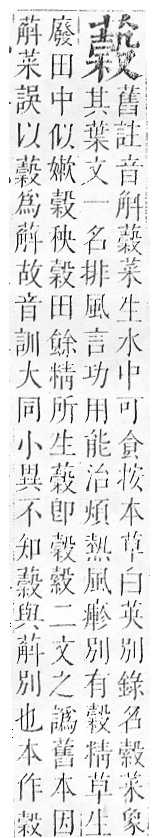 舊註音斛菜生水中可食按本草白英別錄名穀菜象
其葉文一名排風言功用能治煩熱風別有穀精草生
廢田中似嫩穀秧穀田餘精所生即穀二文之譌舊本因
蔛菜誤以為蔛故音訓大同小異不知與蔛別也本作穀